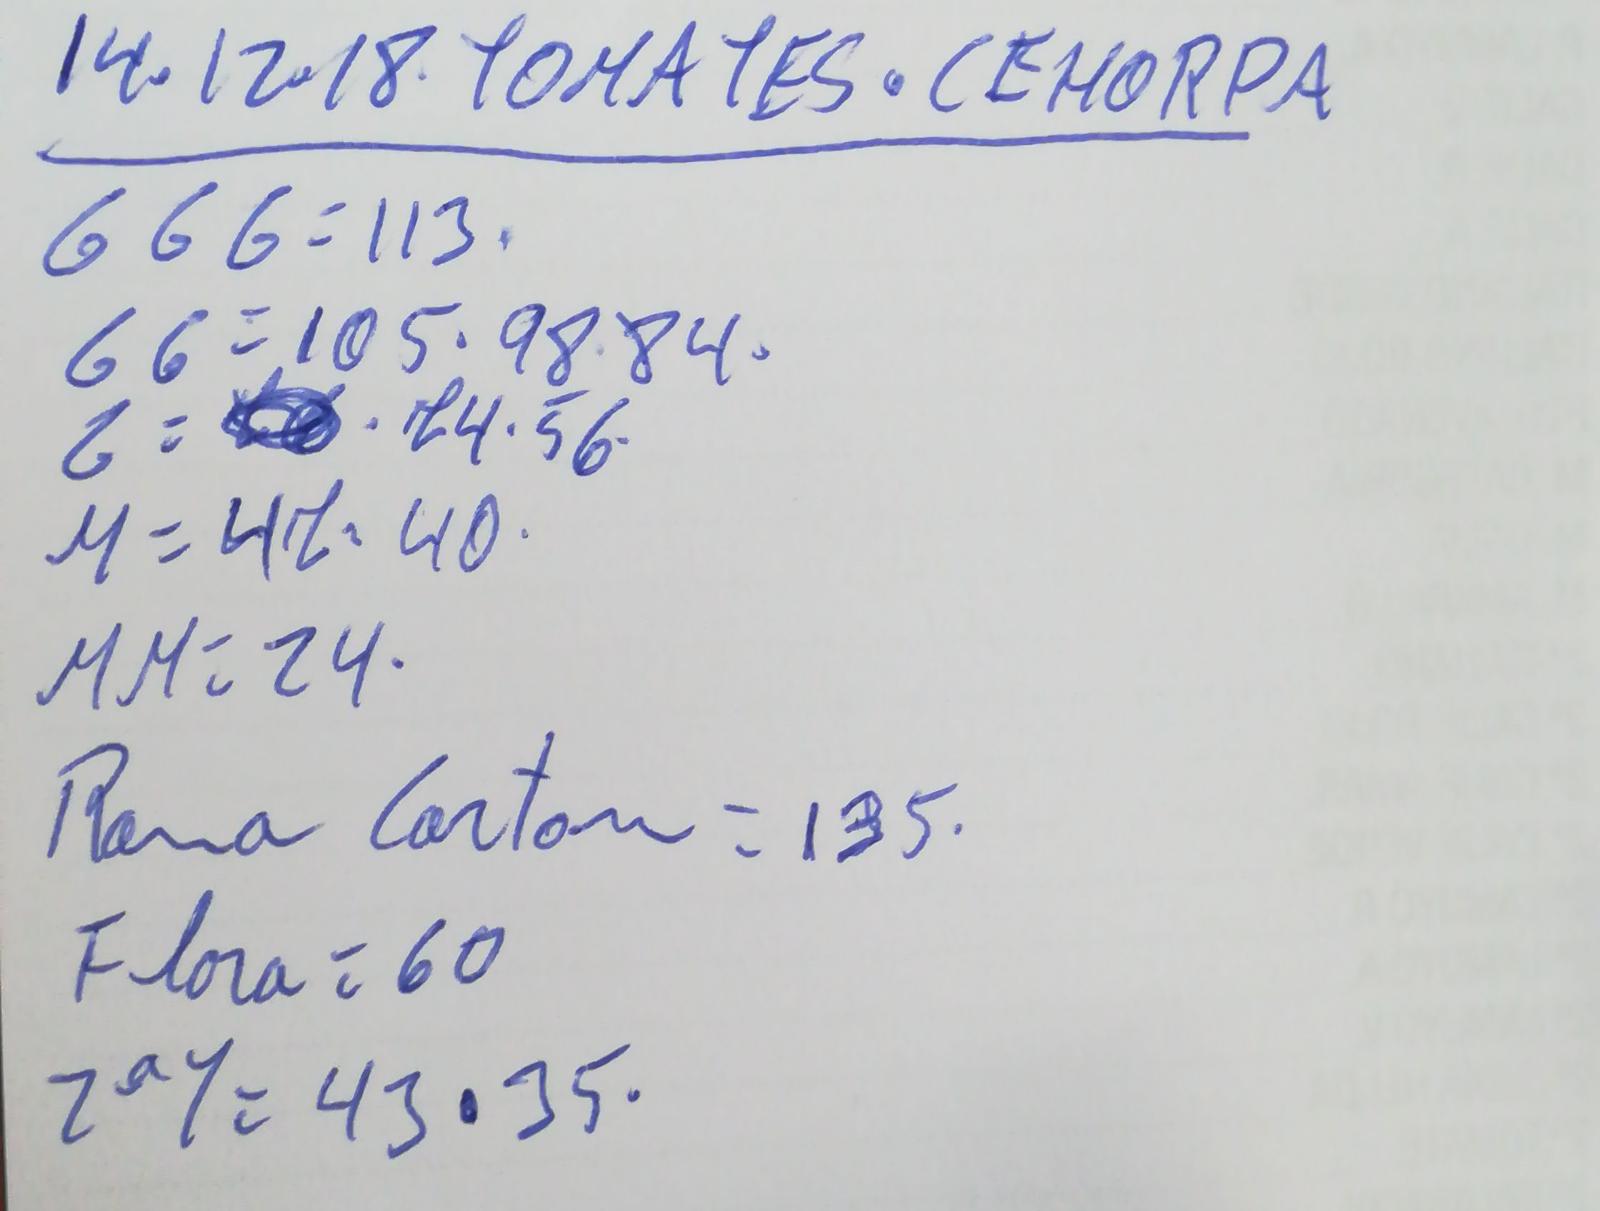 14.12.18. TOMATES. CEHORPA
G G G = 113.
G G = 105. 98. 84.
G = . 74. 56.
M = 47. 40.
MM = 24.
Rama Carton = 135.
Flora = 60
2ª Y = 43. 35.